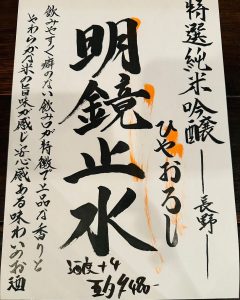 特選純米吟醸 ―長野―
ひやおろし
明鏡止水
酒度+4
飲みやすく癖のない飲み口が特徴で上品な香りと
やわらかな米の旨味が感じ安心感ある味わいのお酒